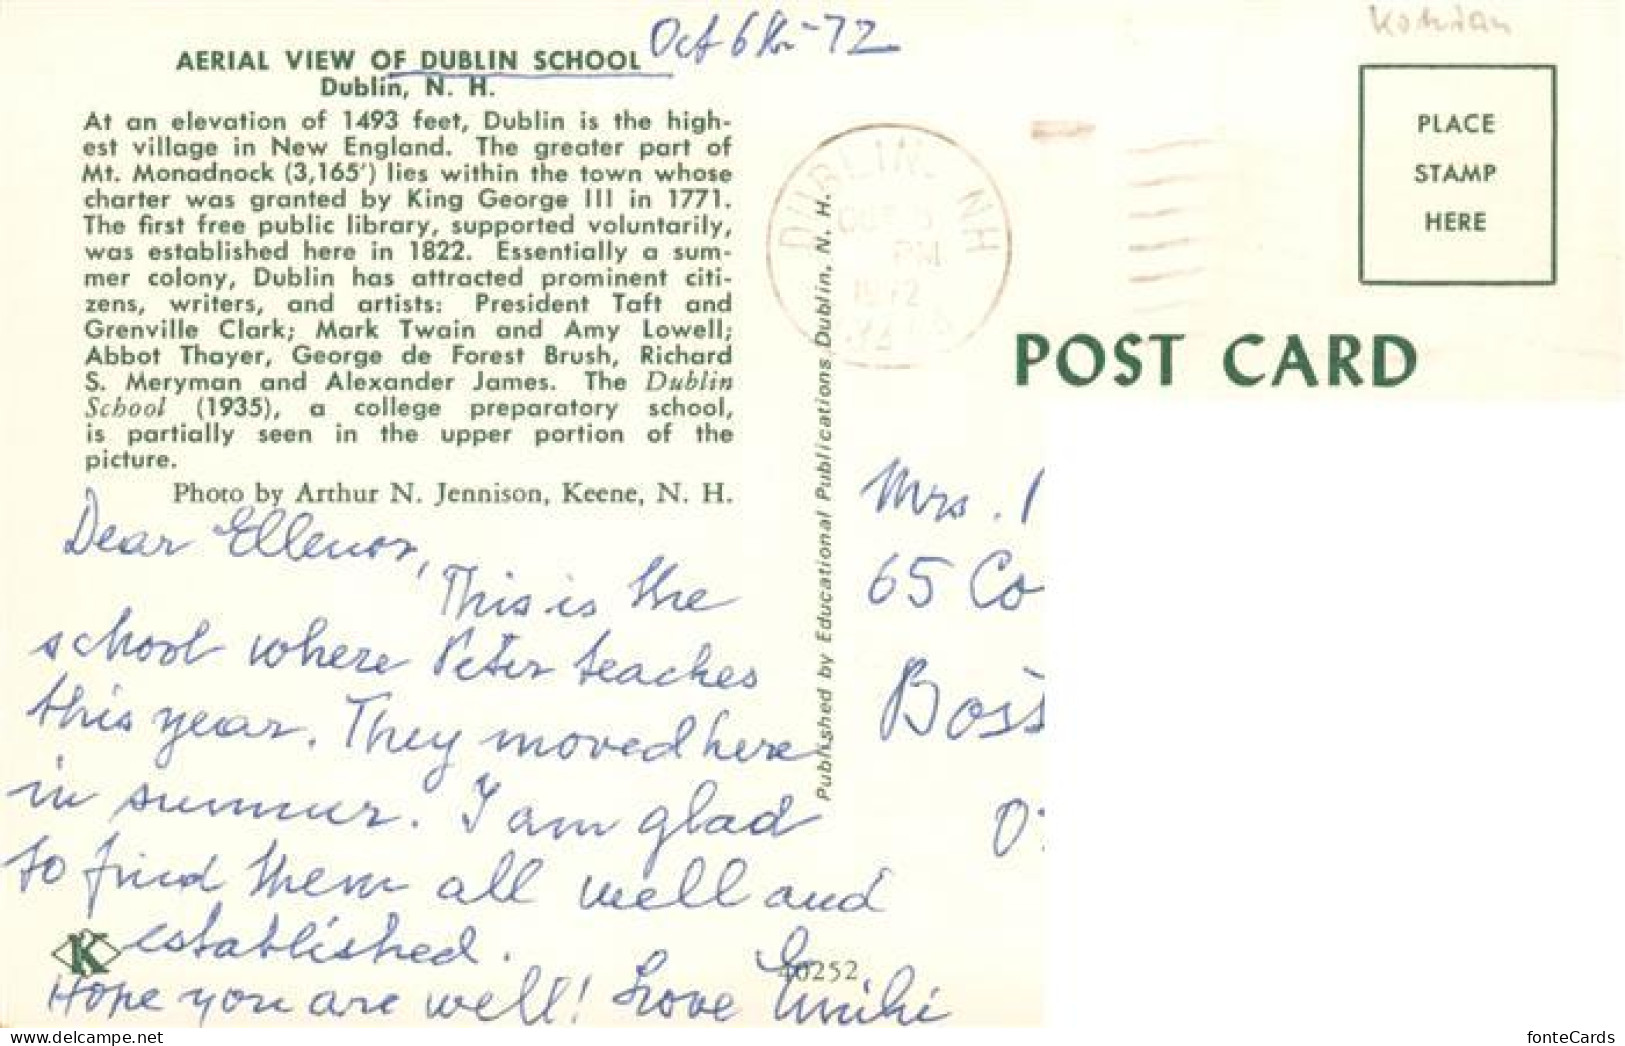 Oct 6th-72
AERIAL VIEW OF DUBLIN SCHOOL
Dublin, N. H.
At an elevation of 1493 feet, Dublin is the high-
est village in New England. The greater part of
Mt. Monadnock (3,165') lies within the town whose
charter was granted by King George III in 1771.
The first free public library, supported voluntarily,
was established here in 1822. Essentially a sum-
mer colony, Dublin has attracted prominent citi-
zens, writers, and artists: President Taft and
Grenville Clark; Mark Twain and Amy Lowell;
Abbot Thayer, George de Forest Brush, Richard
S. Meryman and Alexander James. The Dublin
School (1935), a college preparatory school,
is partially seen in the upper portion of the
picture.
Photo by Arthur N. Jennison, Keene, N. H.
Dear Ellenor,
This is the
school where Peter teaches
this year. They moved here
in summer. I am glad
to find them all well and
established.
Hope you are well! Love
K
40252
Published by Educational Publications Dublin, N. H.
DUBLIN, NH
PM
1972
PLACE
STAMP
HERE
POST CARD
Mrs.
65 Co
Bos
0
fonteCards